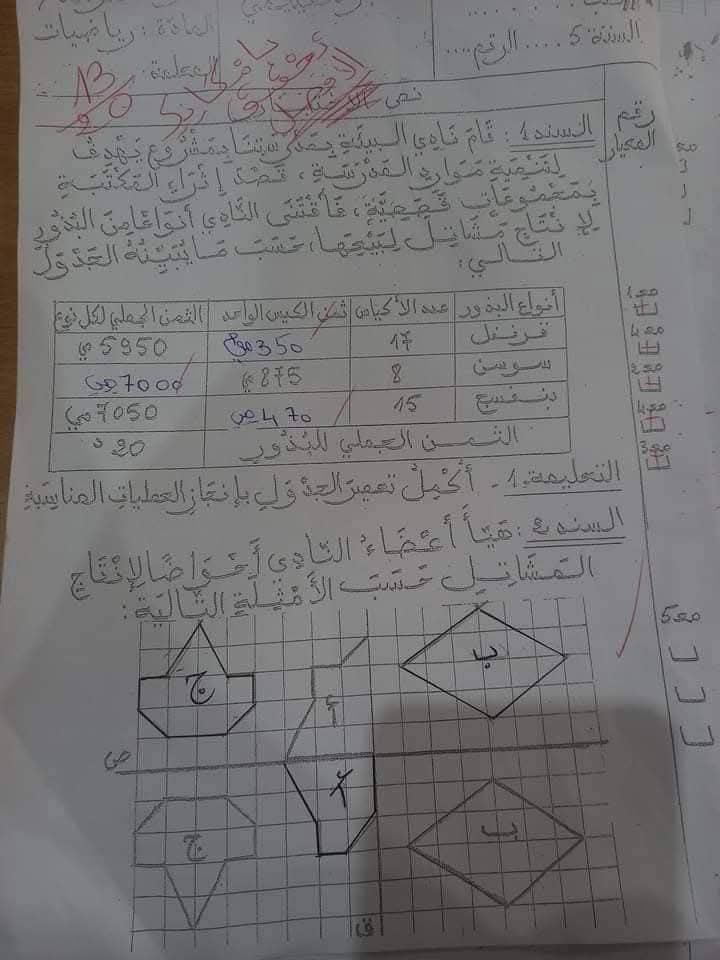 المادة: رياضيات
السنة 5 .... الرقم ....
المعلمة:
13
20
نص الاختبار
رقم المعيار
السند 1: قَامَ نَادِي البِيئَةِ بِمَدْرَسَتِنَا بِمَشْرُوعٍ يَهْدِفُ
لِتَنْمِيَةِ مَوَارِدِ المَدْرَسَةِ، قَصْدَ إِثْرَاءِ المَكْتَبَةِ
بِمَجْمُوعَاتٍ قَصَصِيَّةٍ، فَاقْتَنَى النَّادِي أَنْوَاعًا مِنَ البُذُورِ
لِإِنْتَاجِ مَشَاتِلَ لِبَيْعِهَا، حَسَبَ مَا يُبَيِّنُهُ الجَدْوَلُ
التَّالِي:
أنواع البذور عدد الأكياس ثمن الكيس الواحد الثمن الجملي لكل نوع
قرنفل 17 350 مي 5950 مي
سوسن 8 875 مي 7000 مي
بنفسج 15 470 مي 7050 مي
الثمن الجملي للبذور 20 د
التعليمة 1- أكمل تعمير الجدول بإنجاز العمليات المناسبة
السند 2: هَيَّأَ أَعْضَاءُ النَّادِي أَحْوَاضًا لِإِنْتَاجِ
المَشَاتِلِ حَسَبَ الأَمْثِلَةِ التَّالِيَةِ:
مع5
ج أ ب
ص
ج أ ب
ق